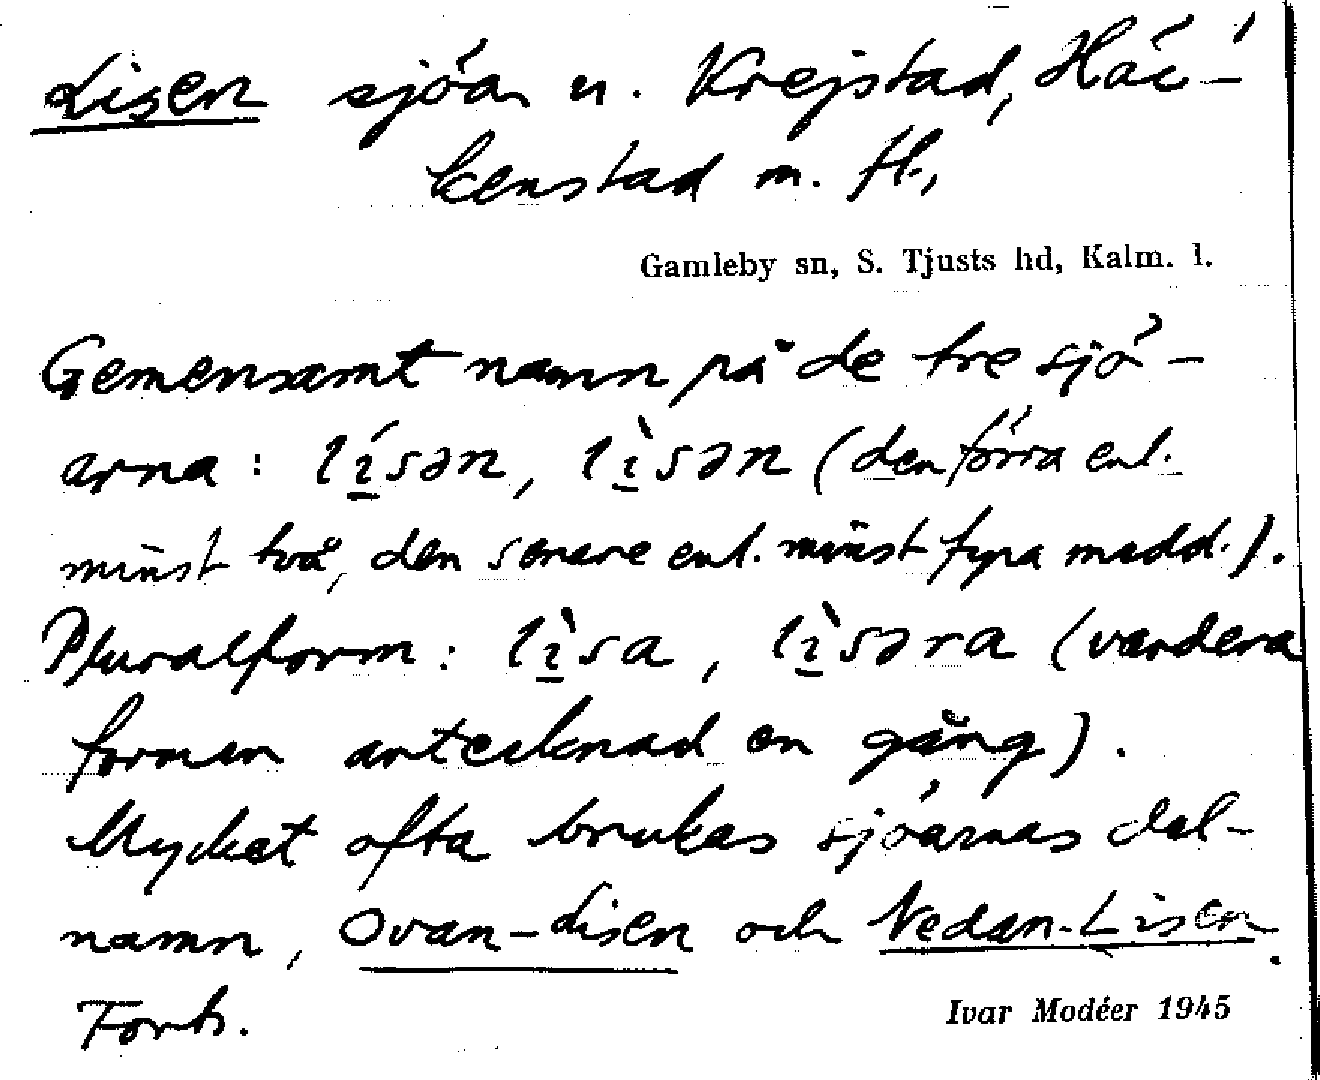 Lisen sjöar n. Krejstad, Häc-
kenstad m. fl.,
Gamleby sn, S. Tjusts hd, Kalm. l.
Gemensamt namn på de tre sjö-
arna: lísən, lìsən (den förra enl.
minst två, den senare enl. minst fyra medd.).
Pluralform: lìsa, lìsəra (vardera
formen antecknad en gång).
Mycket ofta brukas sjöarnas del-
namn, Ovan-Lisen och Nedan-Lisen.
Forts.
Ivar Modéer 1945